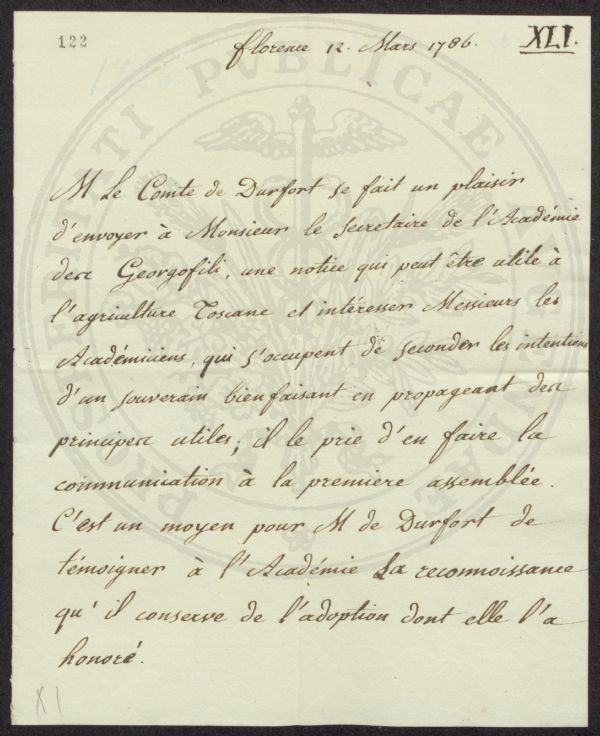 122
florence 12. Mars 1786.
XLI.
M Le Comte de Durfort se fait un plaisir
d'envoyer à Monsieur le secretaire de l'Académie
des Georgofili, une notice qui peut être utile à
l'agriculture Toscane et intéresser Messieurs les
Académiciens, qui s'occupent de seconder les intentions
d'un souverain bienfaisant en propageant des
principes utiles; il le prie d'en faire la
communication à la premiere assemblée.
C'est un moyen pour M de Durfort de
témoigner à l'Académie la reconnoissance
qu'il conserve de l'adoption dont elle l'a
honoré.
XI
PROSPERITATI PUBLICAE AUGENDAE